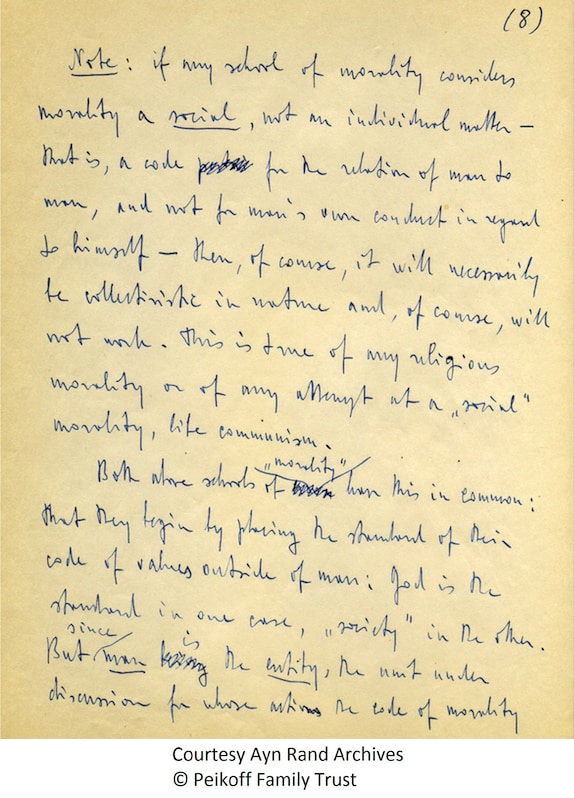 (8)
Note: if any school of morality considers
morality a social, not an individual matter —
that is, a code for the relation of man to
man, and not for man's own conduct in regard
to himself — then, of course, it will necessarily
be collectivistic in nature and, of course, will
not work. This is true of any religious
morality or of any attempt at a „social"
morality, like communism.
„morality"
Both above schools of have this in common:
that they begin by placing the standard of their
code of values outside of man: God is the
standard in one case, „society" in the other.
since is
But man the entity, the unit under
discussion for whose actions the code of morality
Courtesy Ayn Rand Archives
© Peikoff Family Trust